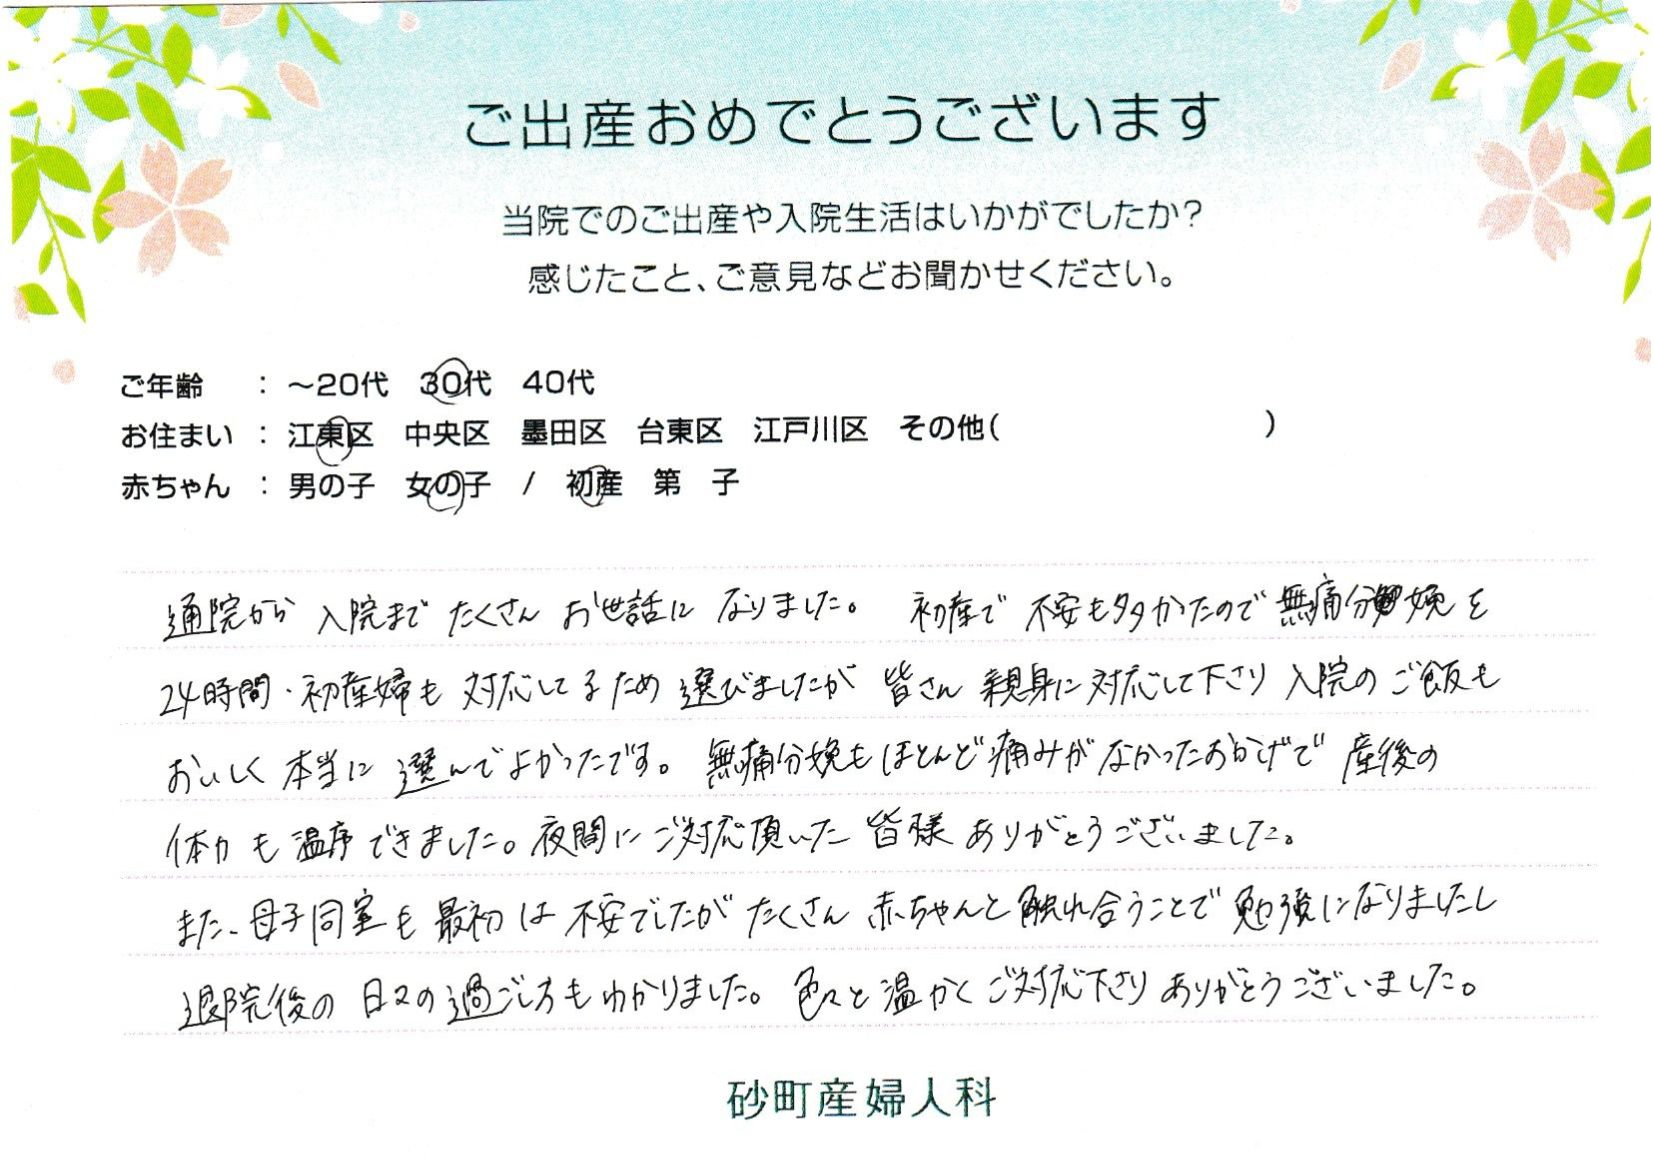 ご出産おめでとうございます
当院でのご出産や入院生活はいかがでしたか?
感じたこと、ご意見などお聞かせください。
ご年齢 : ～20代 30代 40代
お住まい : 江東区 中央区 墨田区 台東区 江戸川区 その他( )
赤ちゃん : 男の子 女の子 / 初産 第 子
通院から 入院まで たくさん お世話に なりました。 初産で 不安も多かったので 無痛分娩を
24時間・初産婦も 対応してるため 選びましたが 皆さん 親身に対応して下さり 入院のご飯も
おいしく 本当に 選んでよかったです。 無痛分娩もほとんど痛みがなかったおかげで 産後の
体力も温存できました。夜間にご対応頂いた 皆様 ありがとうございました。
また、母子同室も最初は不安でしたがたくさん赤ちゃんと触れ合うことで勉強になりましたし
退院後の 日々の過ごし方もわかりました。色々と温かくご対応下さりありがとうございました。
砂町産婦人科